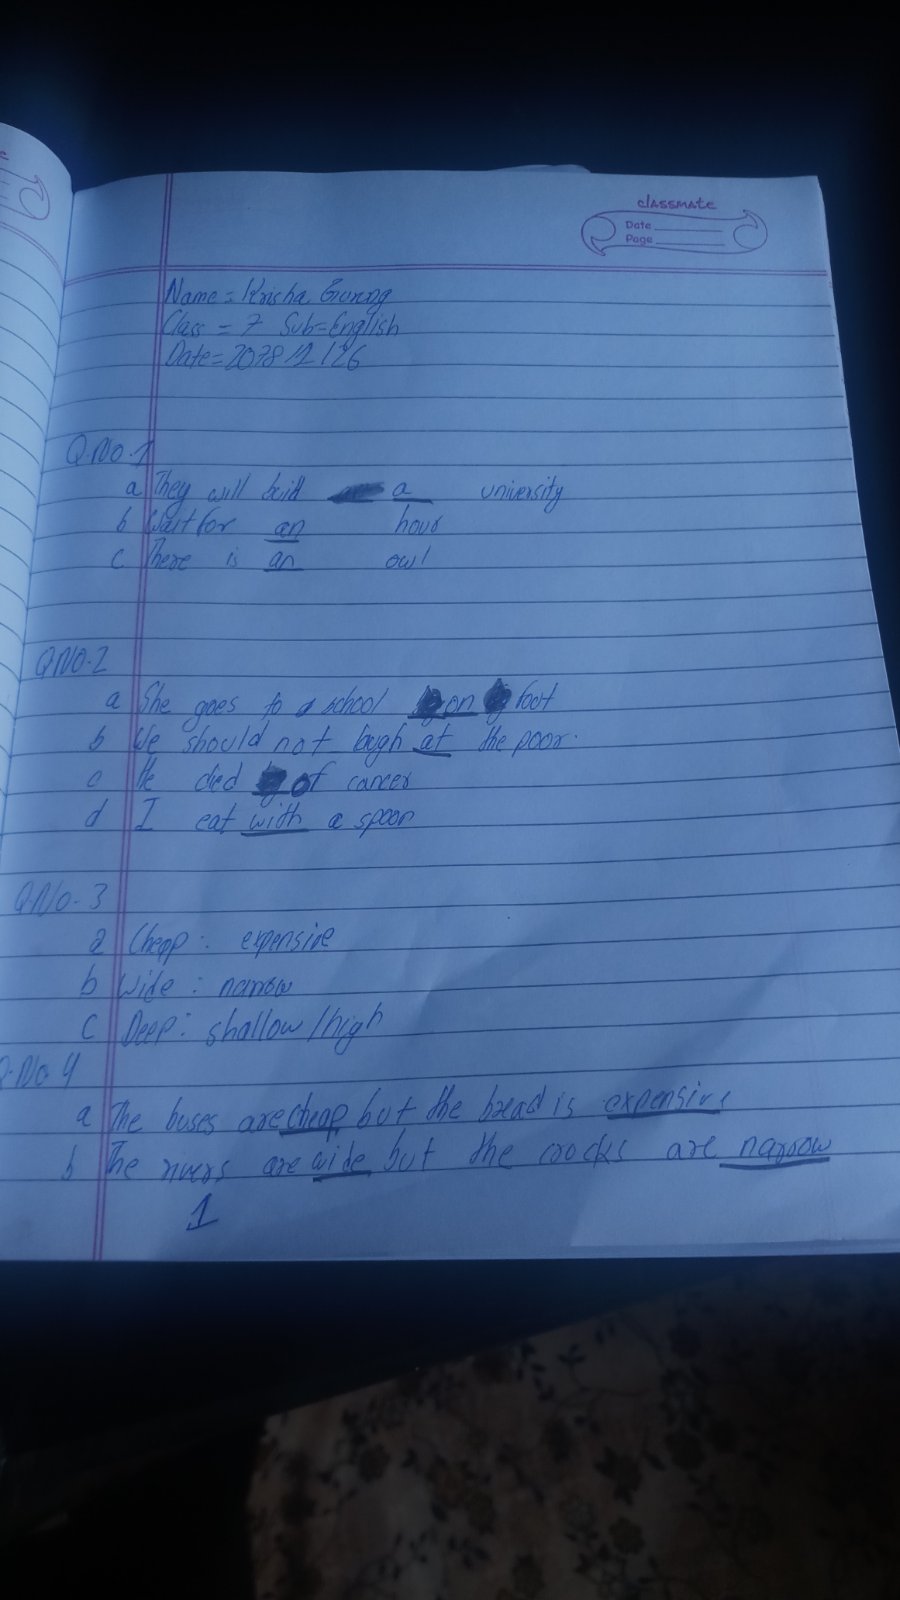 classmate
Date
Page
Name = Krisha Gurung
Class = 7 Sub=English
Date=2078/1/26
Q.No.1
a They will buid a university
b Wait for an hour
c There is an owl
Q.NO.2
a She goes to school on foot
b We should not laugh at the poor.
c He died of cancer
d I eat with a spoon
Q.No.3
a Cheap: expensive
b Wide: narrow
c Deep: shallow/high
Q.No.4
a The buses are cheap but the bread is expensive
b The rivers are wide but the are narrow
1